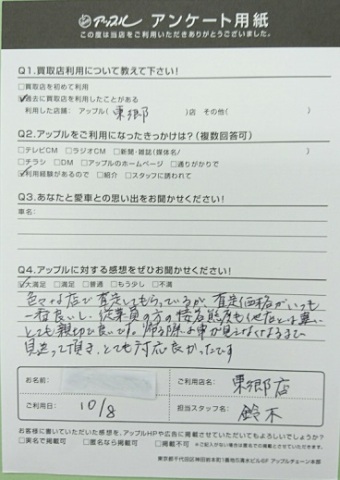 アップル アンケート用紙
この度は当店をご利用いただきありがとうございました。
Q1.買取店利用について教えて下さい!
□買取店を初めて利用
☑過去に買取店を利用したことがある
利用した店舗:アップル( 東郷 )店 その他( )
Q2.アップルをご利用になったきっかけは?(複数回答可)
□テレビCM □ラジオCM □新聞・雑誌(媒体名/ )
□チラシ □DM □アップルのホームページ □通りがかりで
☑利用経験があるので □紹介 □スタッフに誘われて
Q3.あなたと愛車との思い出をお聞かせください!
車名:
Q4.アップルに対する感想をぜひお聞かせください!
☑大満足 □満足 □普通 □もう少し □不満
色々な店で査定してもらっているが、査定価格がいつも
一番良いし、従業員の方の接客態度も他店とは違い
とても親切で良いです。帰る際お車が見えなくなるまで
見送って頂き、とても対応良かったです
お名前:
ご利用店名: 東郷店
ご利用日: 10/8
担当スタッフ名: 鈴木
お客様に書いていただいた感想を、アップルHPや広告に掲載させていただいてもよろしいでしょうか?
□実名で掲載可 □匿名なら掲載可 □掲載不可
東京都千代田区神田錦本町1番地の清水ビル6F アップルチェーン本部